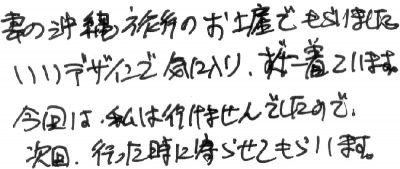 妻の沖縄旅行のお土産でもらいました。
いいデザインで気に入り、ずっと着ています。
今回は、私は行けませんでしたので、
次回、行った時に寄らせてもらいます。